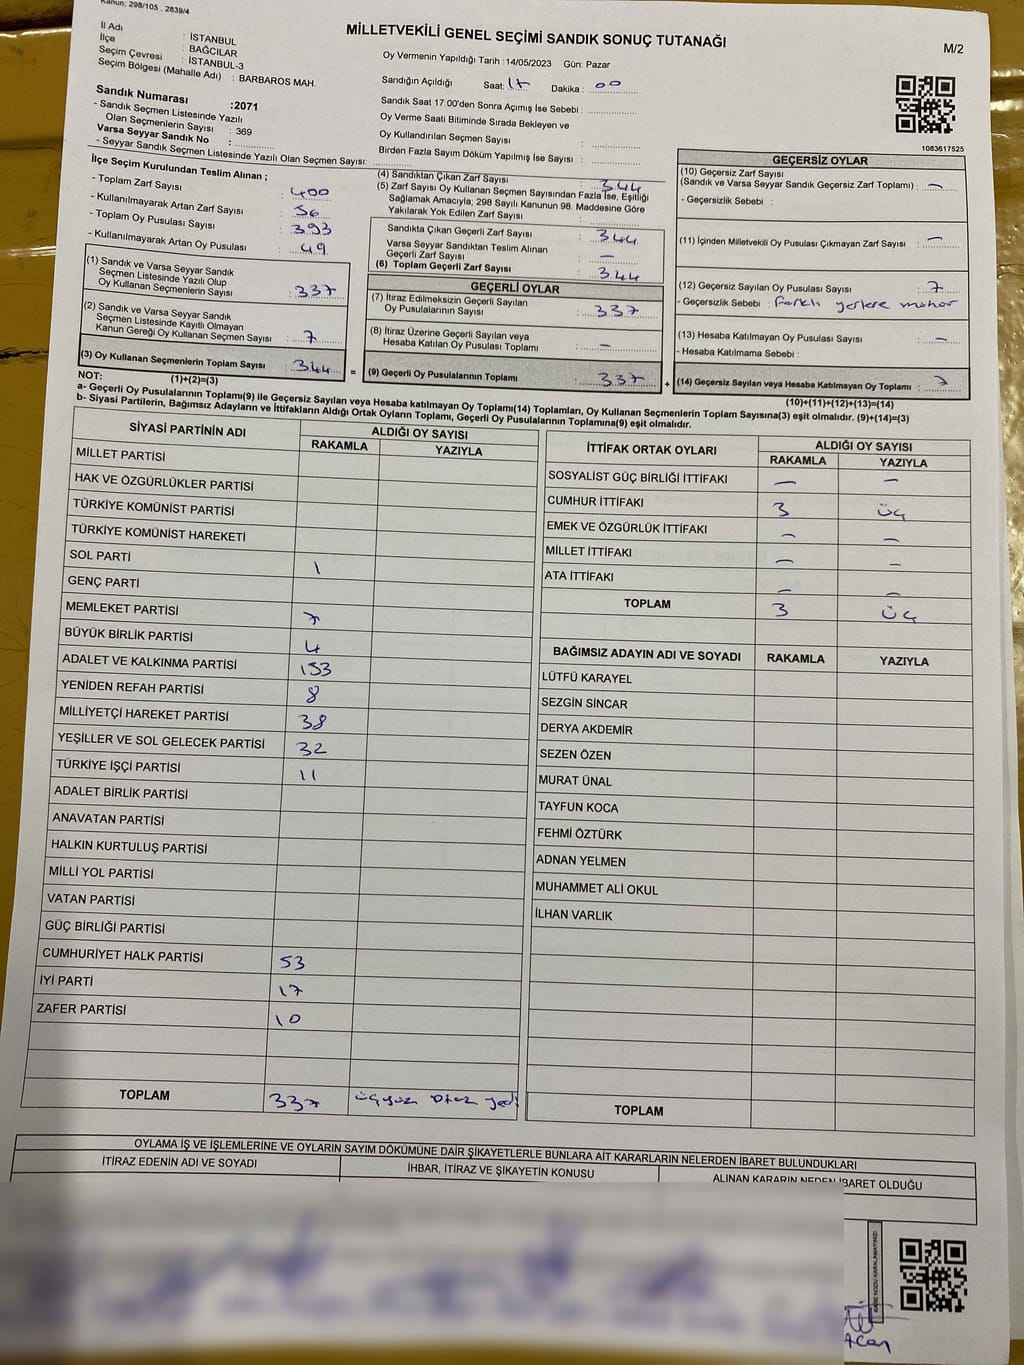 Kanun: 298/105 , 2839/4
MİLLETVEKİLİ GENEL SEÇİMİ SANDIK SONUÇ TUTANAĞI
M/2
İl Adı : İSTANBUL
İlçe : BAĞCILAR
Seçim Çevresi : İSTANBUL-3
Seçim Bölgesi (Mahalle Adı) : BARBAROS MAH.
Sandık Numarası :2071
- Sandık Seçmen Listesinde Yazılı
Olan Seçmenlerin Sayısı : 369
Varsa Seyyar Sandık No :
- Seyyar Sandık Seçmen Listesinde Yazılı Olan Seçmen Sayısı:
Oy Vermenin Yapıldığı Tarih :14/05/2023 Gün: Pazar
Sandığın Açıldığı Saat: 17 Dakika : 00
Sandık Saat 17:00'den Sonra Açımış İse Sebebi :
Oy Verme Saati Bitiminde Sırada Bekleyen ve
Oy Kullandırılan Seçmen Sayısı :
Birden Fazla Sayım Döküm Yapılmış İse Sayısı :
1083617525
İlçe Seçim Kurulundan Teslim Alınan ;
- Toplam Zarf Sayısı : 400
- Kullanılmayarak Artan Zarf Sayısı : 56
- Toplam Oy Pusulası Sayısı : 393
- Kullanılmayarak Artan Oy Pusulası : 49
(1) Sandık ve Varsa Seyyar Sandık
Seçmen Listesinde Yazılı Olup
Oy Kullanan Seçmenlerin Sayısı : 337
(2) Sandık ve Varsa Seyyar Sandık
Seçmen Listesinde Kayıtlı Olmayan
Kanun Gereği Oy Kullanan Seçmen Sayısı : 7
(3) Oy Kullanan Seçmenlerin Toplam Sayısı : 344 =
(1)+(2)=(3)
(4) Sandıktan Çıkan Zarf Sayısı : 344
(5) Zarf Sayısı Oy Kullanan Seçmen Sayısından Fazla İse, Eşitliği
Sağlamak Amacıyla; 298 Sayılı Kanunun 98. Maddesine Göre
Yakılarak Yok Edilen Zarf Sayısı :
Sandıkta Çıkan Geçerli Zarf Sayısı : 344
Varsa Seyyar Sandıktan Teslim Alınan
Geçerli Zarf Sayısı : —
(6) Toplam Geçerli Zarf Sayısı : 344
GEÇERLİ OYLAR
(7) İtiraz Edilmeksizin Geçerli Sayılan
Oy Pusulalarının Sayısı : 337
(8) İtiraz Üzerine Geçerli Sayılan veya
Hesaba Katılan Oy Pusulası Toplamı : —
(9) Geçerli Oy Pusulalarının Toplamı : 337 +
GEÇERSİZ OYLAR
(10) Geçersiz Zarf Sayısı
(Sandık ve Varsa Seyyar Sandık Geçersiz Zarf Toplamı) : —
- Geçersizlik Sebebi :
(11) İçinden Milletvekili Oy Pusulası Çıkmayan Zarf Sayısı : —
(12) Geçersiz Sayılan Oy Pusulası Sayısı : 7
- Geçersizlik Sebebi : farklı yerlere mühür
(13) Hesaba Katılmayan Oy Pusulası Sayısı : —
- Hesaba Katılmama Sebebi :
(14) Geçersiz Sayılan veya Hesaba Katılmayan Oy Toplamı : 7
(10)+(11)+(12)+(13)=(14)
NOT:
a- Geçerli Oy Pusulalarının Toplamı(9) ile Geçersiz Sayılan veya Hesaba katılmayan Oy Toplamı(14) Toplamları, Oy Kullanan Seçmenlerin Toplam Sayısına(3) eşit olmalıdır. (9)+(14)=(3)
b- Siyasi Partilerin, Bağımsız Adayların ve İttifakların Aldığı Ortak Oyların Toplamı, Geçerli Oy Pusulalarının Toplamına(9) eşit olmalıdır.
SİYASİ PARTİNİN ADI ALDIĞI OY SAYISI
RAKAMLA YAZIYLA
MİLLET PARTİSİ
HAK VE ÖZGÜRLÜKLER PARTİSİ
TÜRKİYE KOMÜNİST PARTİSİ
TÜRKİYE KOMÜNİST HAREKETİ
SOL PARTİ 1
GENÇ PARTİ
MEMLEKET PARTİSİ 7
BÜYÜK BİRLİK PARTİSİ 4
ADALET VE KALKINMA PARTİSİ 153
YENİDEN REFAH PARTİSİ 8
MİLLİYETÇİ HAREKET PARTİSİ 38
YEŞİLLER VE SOL GELECEK PARTİSİ 32
TÜRKİYE İŞÇİ PARTİSİ 11
ADALET BİRLİK PARTİSİ
ANAVATAN PARTİSİ
HALKIN KURTULUŞ PARTİSİ
MİLLİ YOL PARTİSİ
VATAN PARTİSİ
GÜÇ BİRLİĞİ PARTİSİ
CUMHURİYET HALK PARTİSİ 53
İYİ PARTİ 17
ZAFER PARTİSİ 10
TOPLAM 337 üçyüz otuz yedi
İTTİFAK ORTAK OYLARI ALDIĞI OY SAYISI
RAKAMLA YAZIYLA
SOSYALİST GÜÇ BİRLİĞİ İTTİFAKI — —
CUMHUR İTTİFAKI 3 üç
EMEK VE ÖZGÜRLÜK İTTİFAKI — —
MİLLET İTTİFAKI — —
ATA İTTİFAKI — —
TOPLAM 3 üç
BAĞIMSIZ ADAYIN ADI VE SOYADI RAKAMLA YAZIYLA
LÜTFÜ KARAYEL
SEZGİN SİNCAR
DERYA AKDEMİR
SEZEN ÖZEN
MURAT ÜNAL
TAYFUN KOCA
FEHMİ ÖZTÜRK
ADNAN YELMEN
MUHAMMET ALİ OKUL
İLHAN VARLIK
TOPLAM
OYLAMA İŞ VE İŞLEMLERİNE VE OYLARIN SAYIM DÖKÜMÜNE DAİR ŞİKAYETLERLE BUNLARA AİT KARARLARIN NELERDEN İBARET BULUNDUKLARI
İTİRAZ EDENİN ADI VE SOYADI İHBAR, İTİRAZ VE ŞİKAYETİN KONUSU ALINAN KARARIN NEDEN İBARET OLDUĞU
KARE KODU KARALAMAYINIZ!